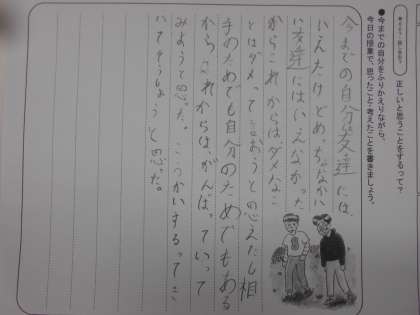 正しいと思うことをするって？
●今までの自分をふりかえりながら、
今日の授業で、思ったこと・考えたことを書きましょう。
今までの自分が友達には、
いえたけどめっちゃなかい
い友達にはいえなかった
からこれからはダメなこ
とはダメって言おうと思えたし相
手のためでも自分のためでもある
からこれからは、がんばっていって
みようと思った。
と思った。